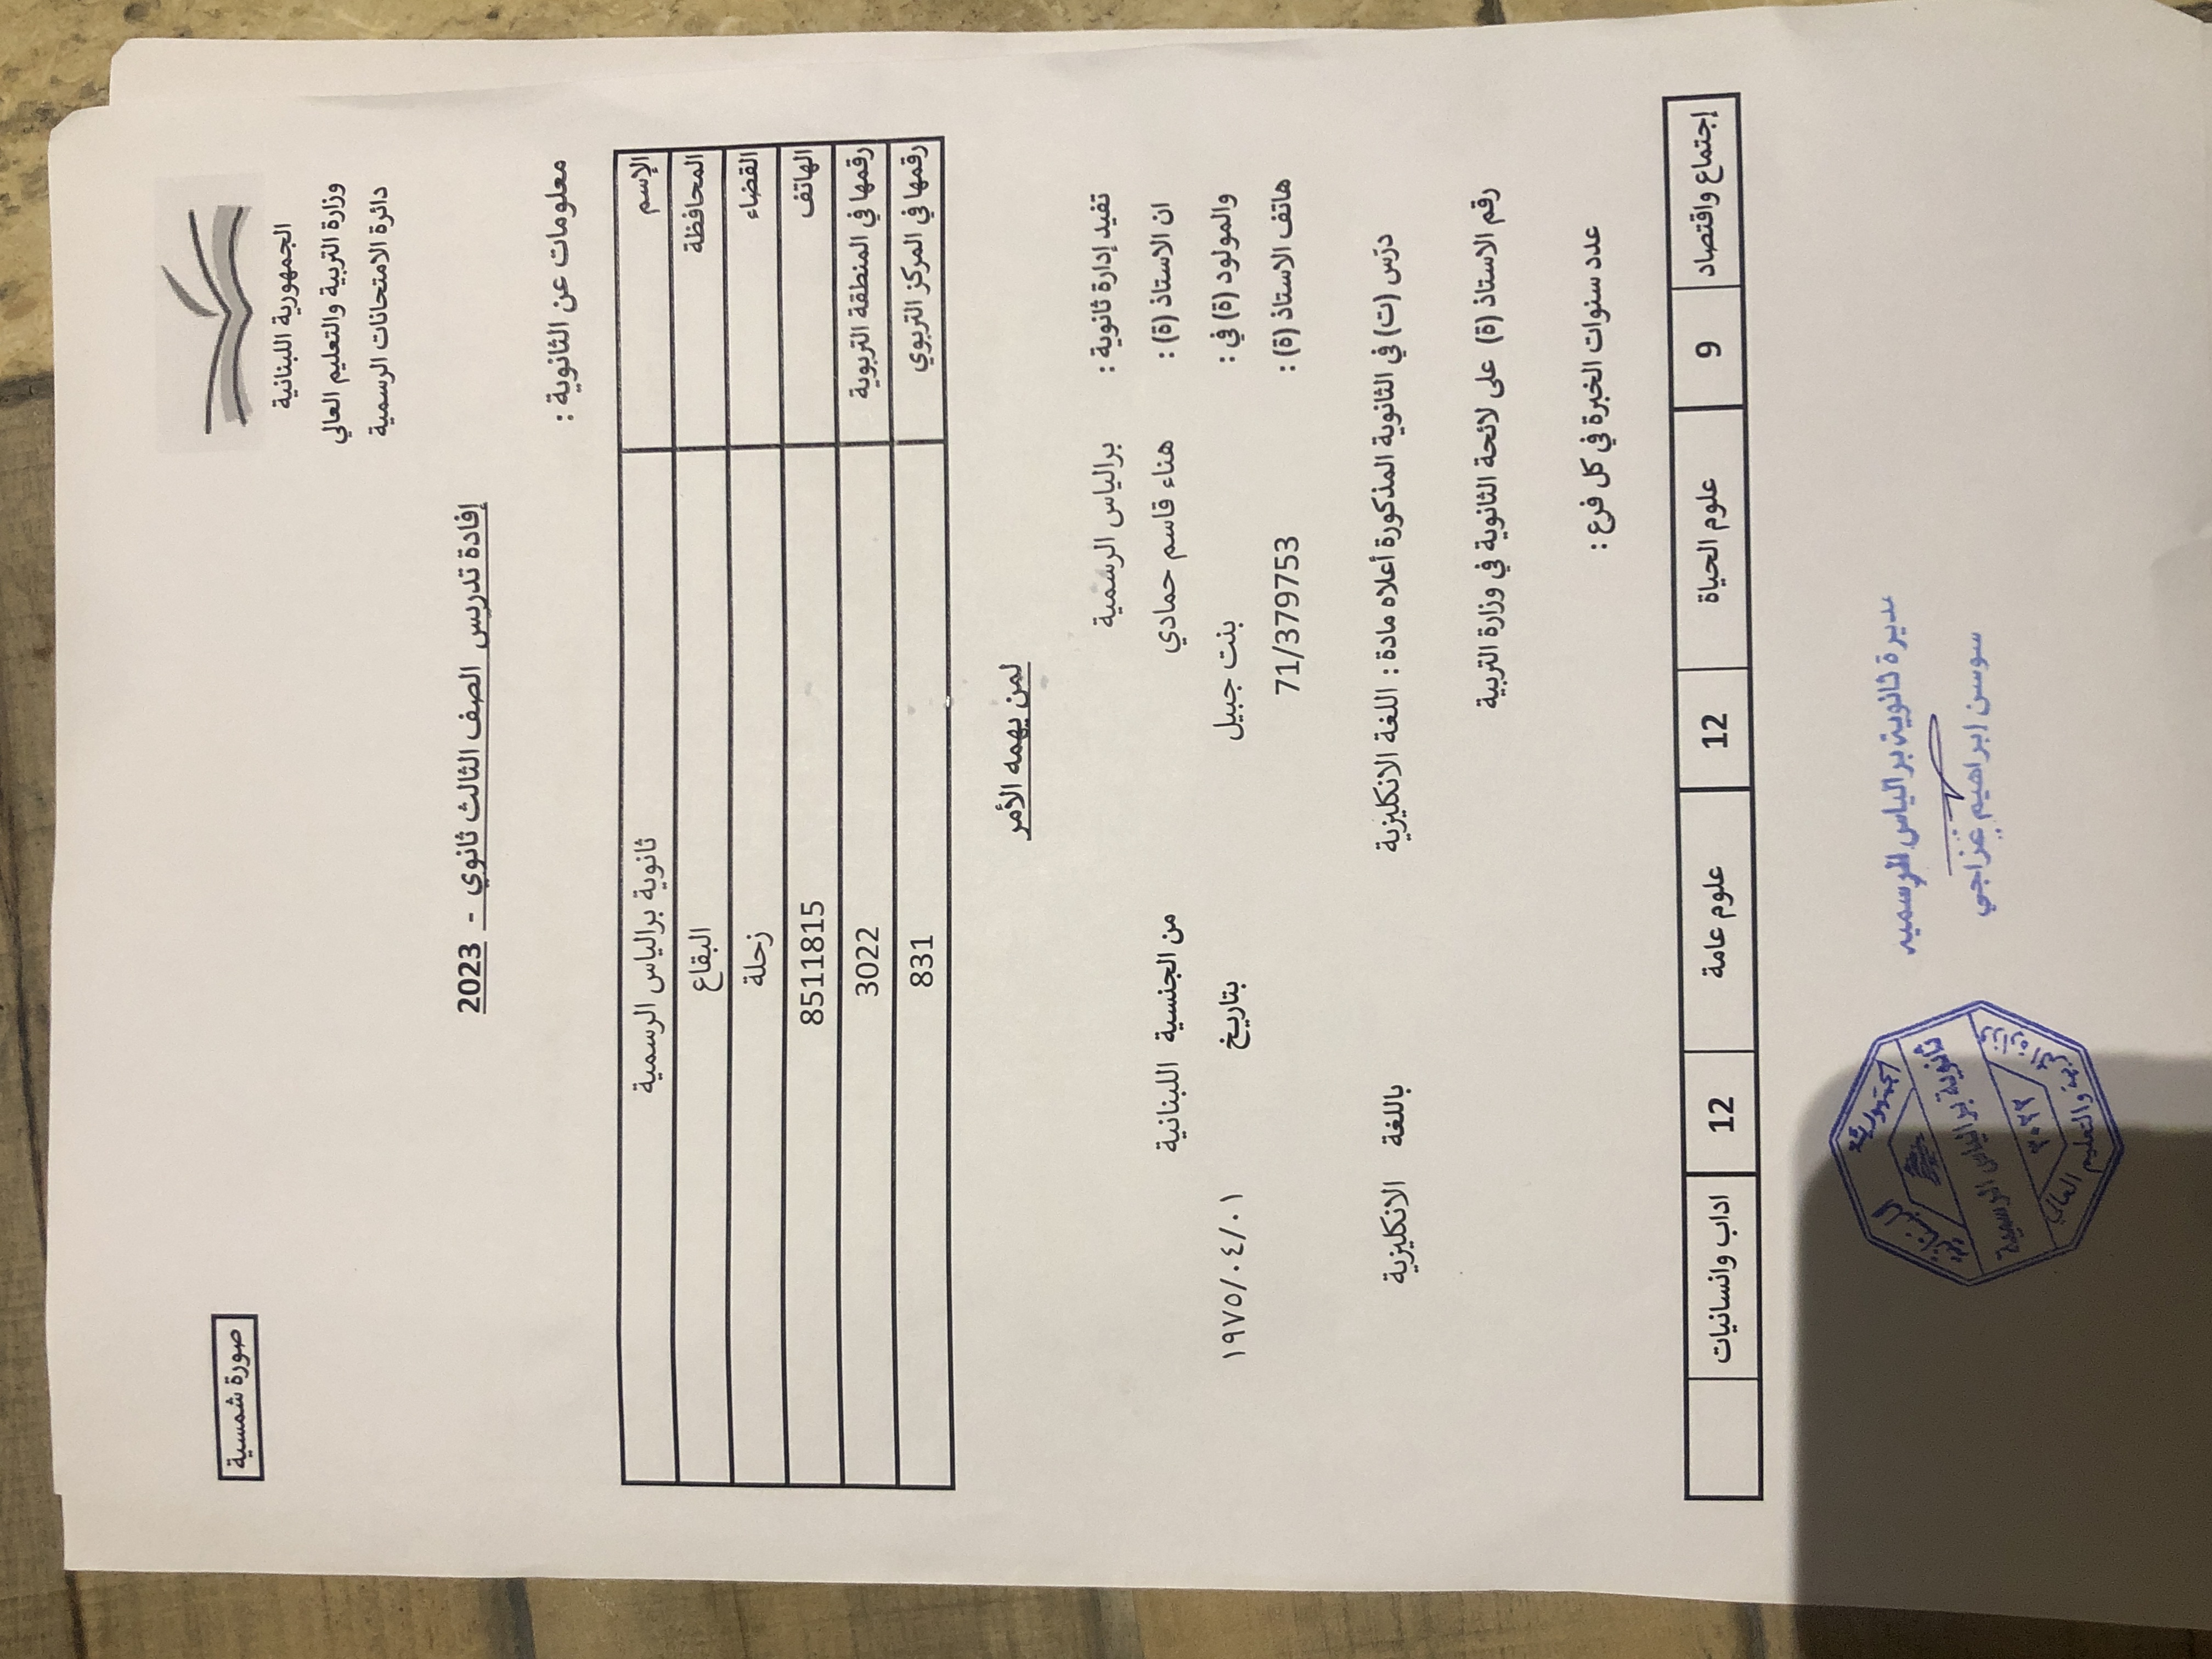 الجمهورية اللبنانية
وزارة التربية والتعليم العالي
دائرة الامتحانات الرسمية
صورة شمسية
إفادة تدريس الصف الثالث ثانوي - 2023
معلومات عن الثانوية :
الإسم ثانوية برالياس الرسمية
المحافظة البقاع
القضاء زحلة
الهاتف 8511815
رقمها في المنطقة التربوية 3022
رقمها في المركز التربوي 831
لمن يهمه الأمر
تفيد إدارة ثانوية : برالياس الرسمية
ان الاستاذ (ة) : هناء قاسم حمادي من الجنسية اللبنانية
والمولود (ة) في : بنت جبيل بتاريخ ١٩٧٥/٠٤/٠١
هاتف الاستاذ (ة) : 71/379753
درّس (ت) في الثانوية المذكورة أعلاه مادة : اللغة الانكليزية باللغة الانكليزية
رقم الاستاذ (ة) على لائحة الثانوية في وزارة التربية
عدد سنوات الخبرة في كل فرع :
إجتماع واقتصاد 9 علوم الحياة 12 علوم عامة 12 اداب وانسانيات
مديرة ثانوية برالياس الرسميه
سوسن ابراهيم عراجي
الجمهورية اللبنانية
ثانوية برالياس الرسمية
٣٠٢٢
وزارة التربية والتعليم العالي